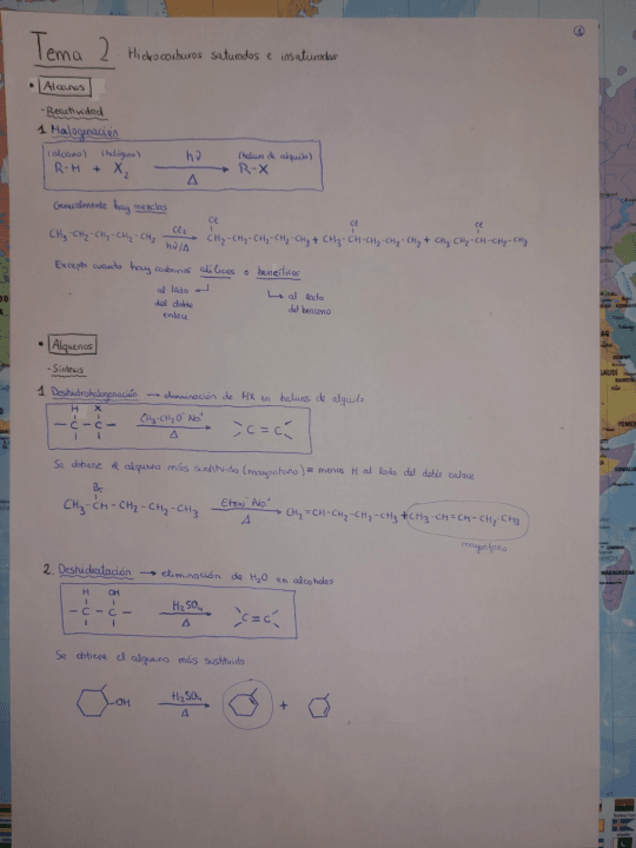 1
Tema 2 Hidrocarburos saturados e insaturados
• Alcanos
- Reactividad
1 Halogenación
(alcano) (halógeno) hν (haluro de alquilo)
R-H + X₂ → R-X
Δ
Generalmente hay mezclas
Cl Cl Cl
CH₃-CH₂-CH₂-CH₂-CH₃ Cl₂ hν/Δ CH₂-CH₂-CH₂-CH₂-CH₃ + CH₃-CH-CH₂-CH₂-CH₃ + CH₃-CH₂-CH-CH₂-CH₃
Excepto cuando hay carbonos alílicos o bencílicos
al lado al lado
del doble del benceno
enlace
• Alquenos
- Síntesis
1 Deshidrohalogenación → eliminación de HX en haluros de alquilo
H X CH₃-CH₂O⁻Na⁺
-C-C- → C=C
Δ
Se obtiene el alqueno más sustituido (mayoritario) = menos H al lado del doble enlace
Br
CH₃-CH-CH₂-CH₂-CH₃ Δ CH₂=CH-CH₂-CH₂-CH₃ + CH₃-CH=CH-CH₂-CH₃
mayoritario
2. Deshidratación → eliminación de H₂O en alcoholes
H OH H₂SO₄
-C-C- → C=C
Δ
Se obtiene el alqueno más sustituido
OH H₂SO₄ → +
Δ